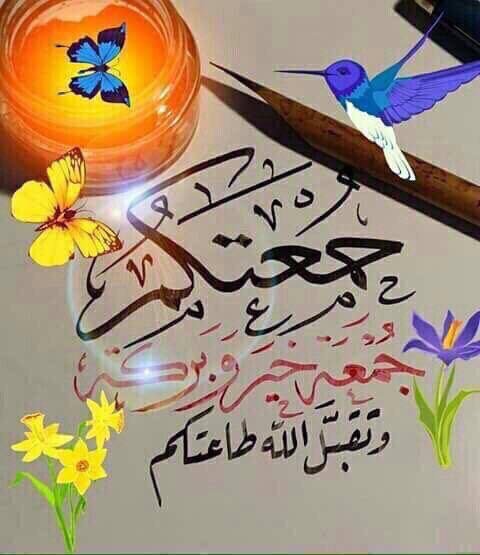 جمعتكم
جُمْعَة خَير وبركة
وتقبَّل الله طاعتكم